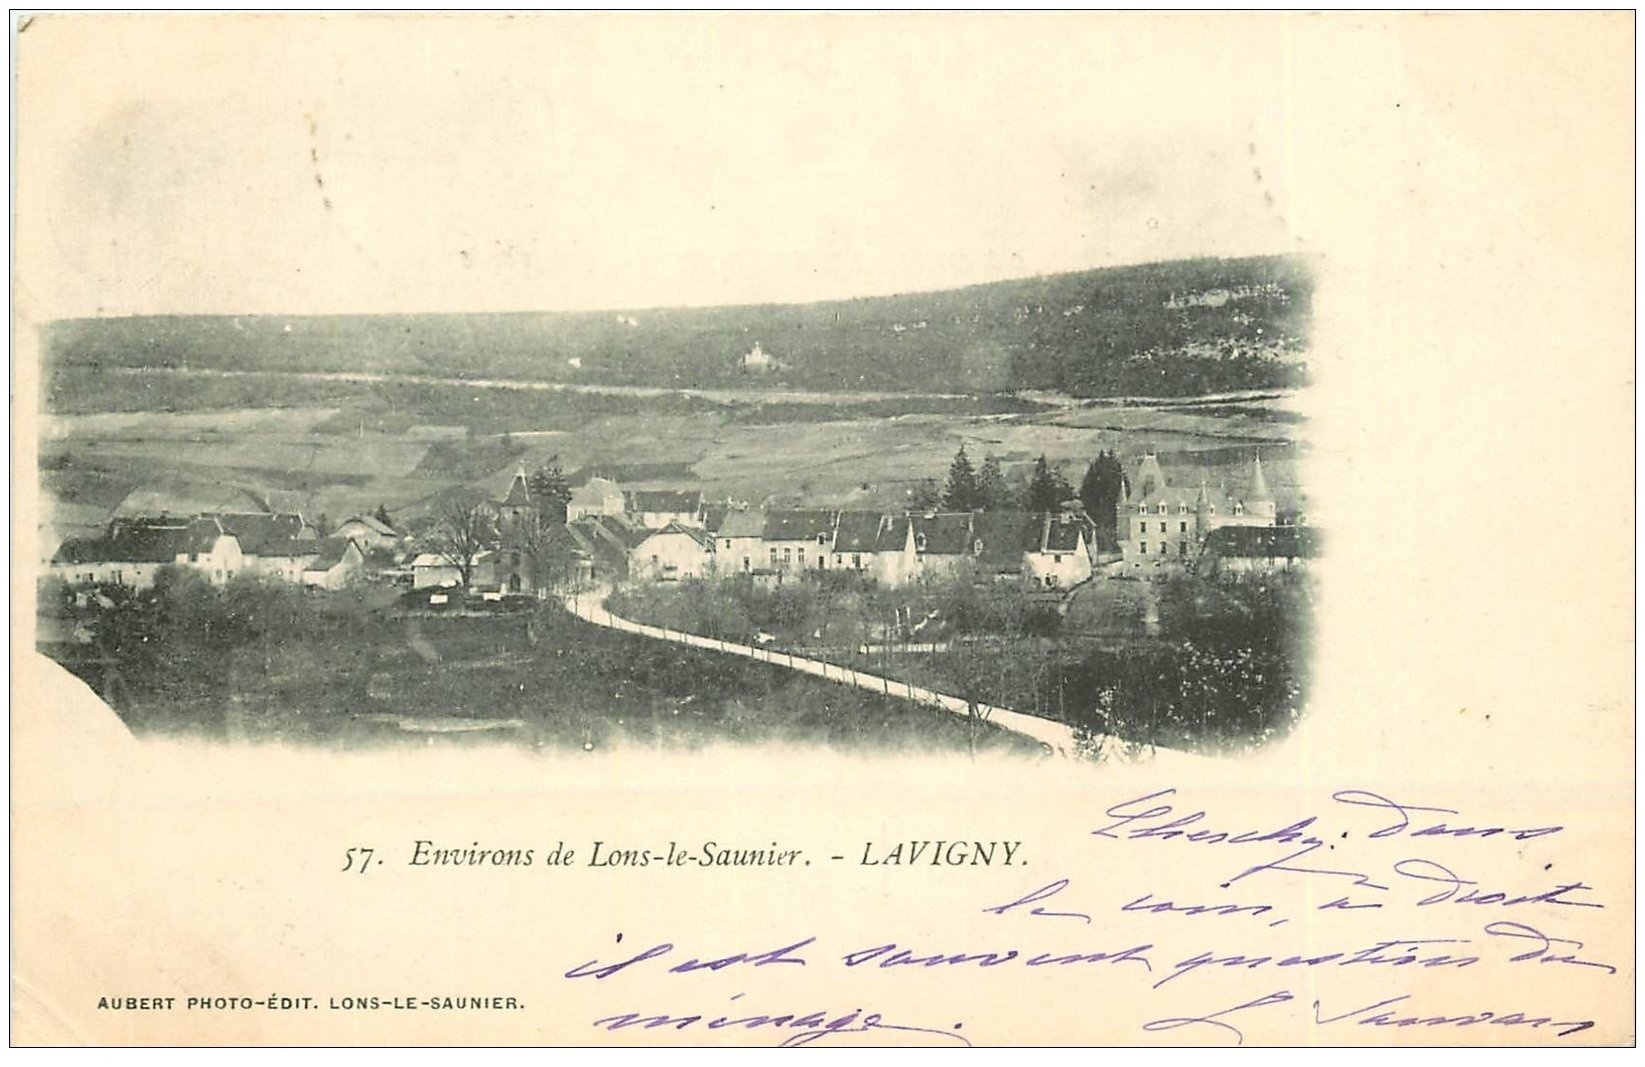 57. Environs de Lons-le-Saunier. - LAVIGNY.
Cherchez: dans
le coin, à droite
il est souvent question du
ménage.
AUBERT PHOTO-ÉDIT. LONS-LE-SAUNIER.